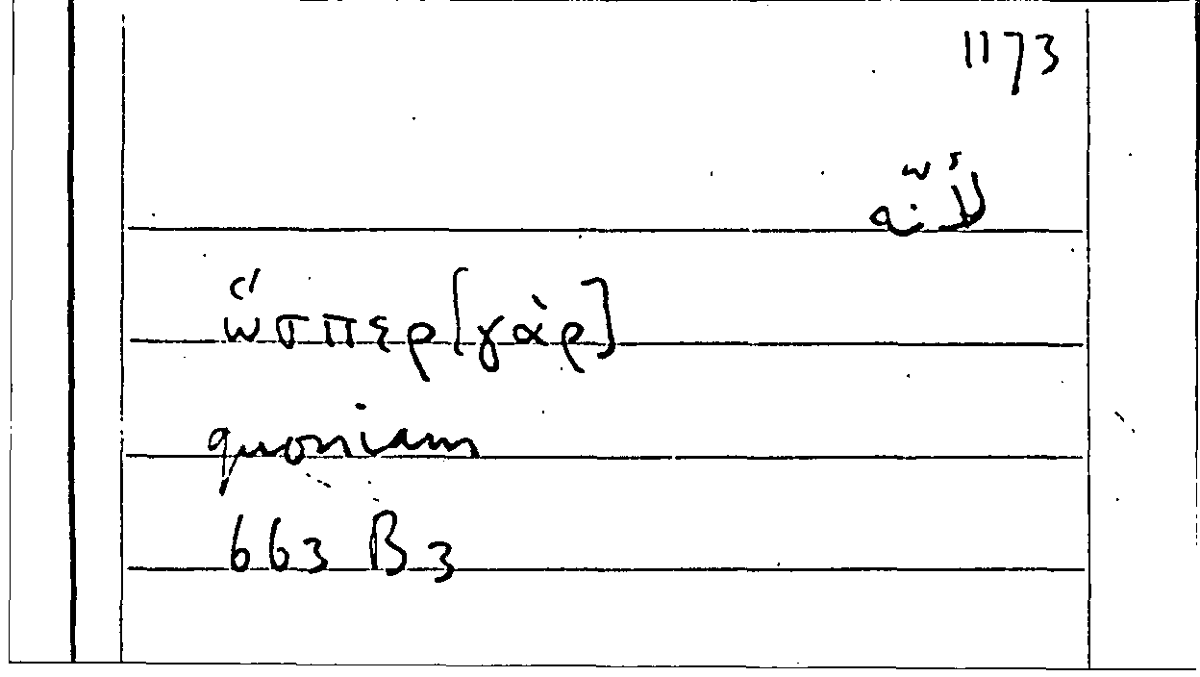 1173
لأنّه
ὥσπερ [γὰρ]
quoniam
663 B 3